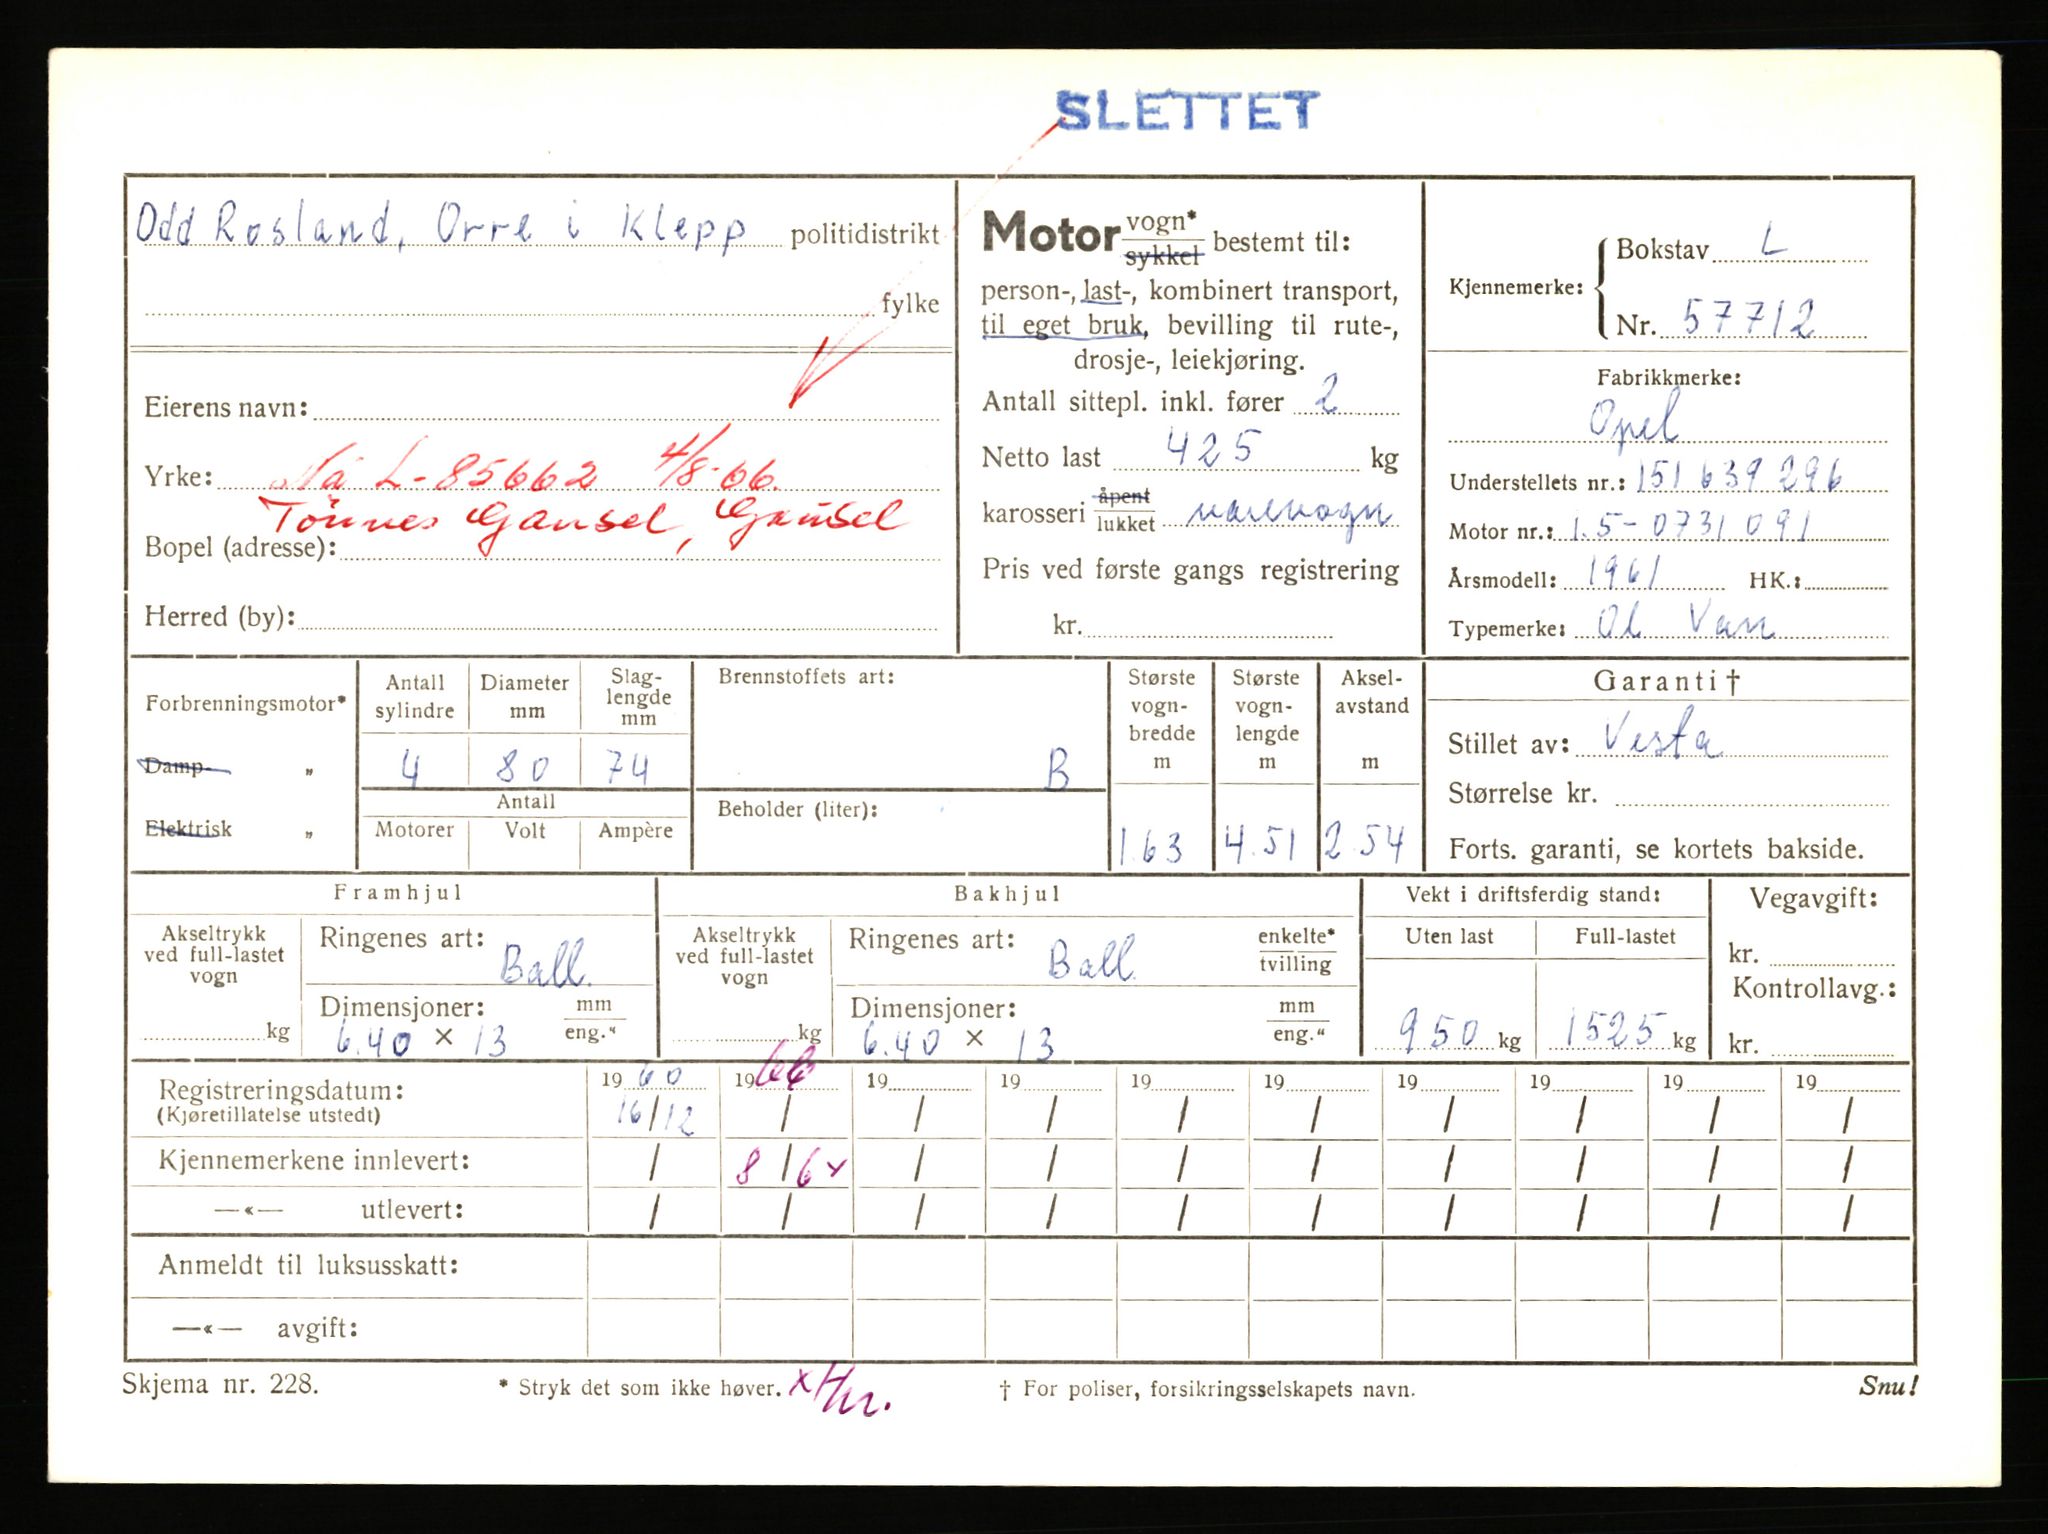 SLETTET
Odd Rosland, Orre i Klepp politidistrikt
fylke
Eierens navn:
Yrke: Nå L-85662 4/8-66.
Tønnes Gausel, Gausel
Bopel (adresse):
Herred (by):
Motor vogn* / sykkel bestemt til:
person-, last-, kombinert transport,
til eget bruk, bevilling til rute-,
drosje-, leiekjøring.
Antall sittepl. inkl. fører 2
Netto last 425 kg
karosseri åpent / lukket varevogn
Pris ved første gangs registrering
kr.
Kjennemerke: Bokstav L
Nr. 57712
Fabrikkmerke:
Opel
Understellets nr.: 151 639 296
Motor nr.: 1.5-0731091
Årsmodell: 1961 HK.:
Typemerke: Ol Van
Forbrenningsmotor*
Damp- „
Elektrisk „
Antall sylindre Diameter mm Slag-lengde mm
4 80 74
Antall
Motorer Volt Ampère
Brennstoffets art:
B
Beholder (liter):
Største vogn-bredde m Største vogn-lengde m Aksel-avstand m
1.63 4.51 2.54
Garanti †
Stillet av: Vesta
Størrelse kr.
Forts. garanti, se kortets bakside.
Framhjul
Akseltrykk ved full-lastet vogn
kg
Ringenes art: Ball.
Dimensjoner: mm / eng."
6.40 × 13
Bakhjul
Akseltrykk ved full-lastet vogn
kg
Ringenes art: Ball. enkelte* / tvilling
Dimensjoner: mm / eng."
6.40 × 13
Vekt i driftsferdig stand:
Uten last Full-lastet
950 kg 1525 kg
Vegavgift:
kr.
Kontrollavg.:
kr.
Registreringsdatum: 1960 1966 19 19 19 19 19 19 19 19
(Kjøretillatelse utstedt) 16/12 / / / / / / / / /
Kjennemerkene innlevert: / 8/6 x / / / / / / / /
—«— utlevert: / / / / / / / / / /
Anmeldt til luksusskatt:
—«— avgift:
Skjema nr. 228. * Stryk det som ikke høver. x † For poliser, forsikringsselskapets navn. Snu!